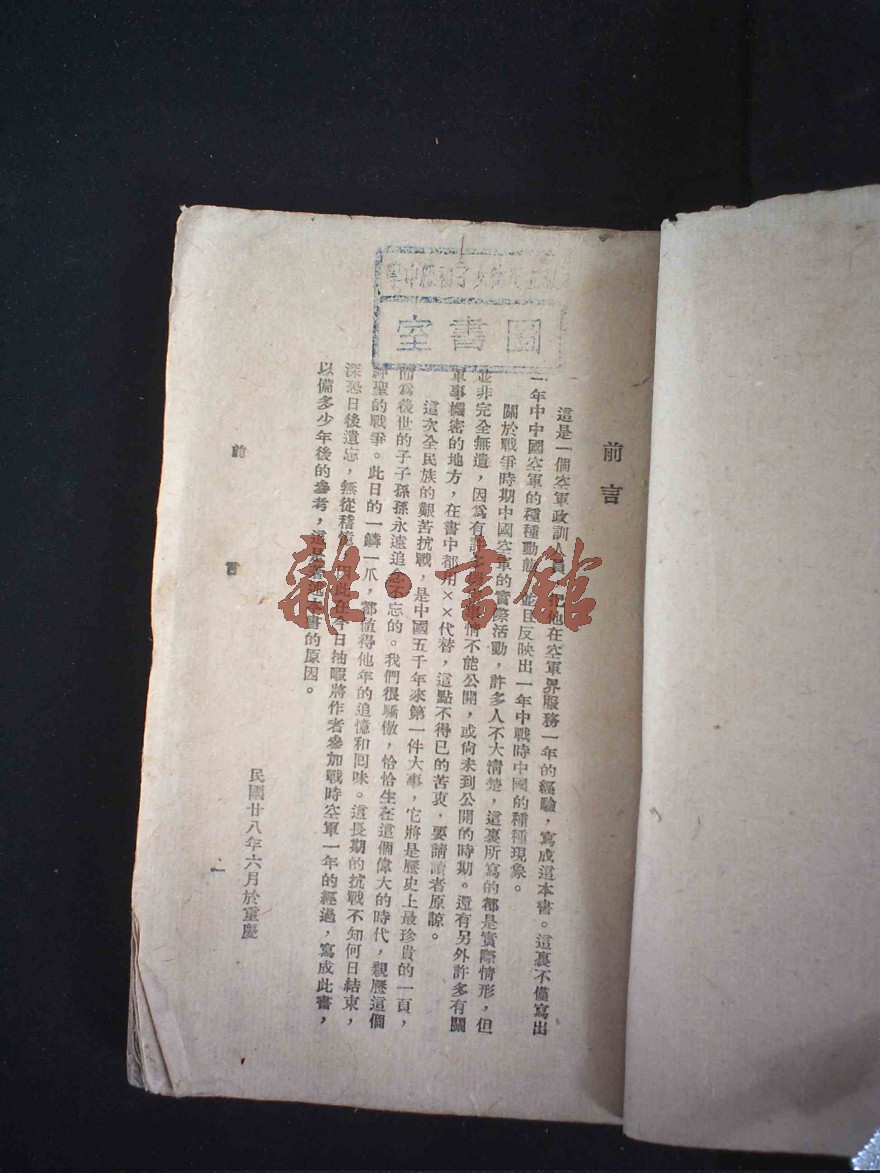 前言
這是一個空軍政訓人員,把他在空軍界服務一年的經驗,寫成這本書。這裏不僅寫出
一年中中國空軍的種種動態,並且反映出一年中戰時中國的種種現象。
關於戰爭時期中國空軍的實際活動,許多人不大清楚,這裏所寫的都是實際情形,但
並非完全無遺,因爲有許多事情不能公開,或尙未到公開的時期。還有另外許多有關
軍事機密的地方,在書中都用××代替,這點不得已的苦衷,要請讀者原諒。
這次全民族的艱苦抗戰,是中國五千年來第一件大事,它將是歷史上最珍貴的一頁,
而爲後世的子子孫孫永遠追念不忘的。我們很驕傲,恰恰生在這個偉大的時代,親歷這個
神聖的戰爭。此日的一鱗一爪,都値得他年的追憶和囘味。這長期的抗戰不知何日結束,
深恐日後遺忘,無從稽,因此在今日抽暇將作者參加戰時空軍一年的經過,寫成此書,
以備多少年後的參考,這是著述本書的原因。
民國廿八年六月於重慶
前言
一
圖書室
雜·書館